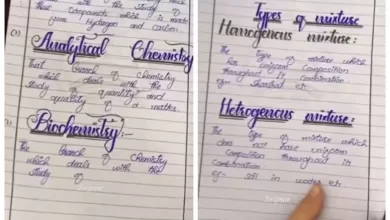 that branch which deals with the study of
that compounds which is made
from Hydrogen and carbon
Analytical Chemistry
That Branch of chemistry
which deals with the
study of quantity and
quality of a matter.
Biochemistry:-
The Branch of chemistry
which deals with the
study of
Types of mixture
Homogeneous mixture:
The type of mixture which
has uniform composition
throughout its combination
eg:- Sharbat etc
Hetrogeneous mixture:
The type of mixture which
does not have uniform
composition throughout its
combination
eg:- soil in water etc